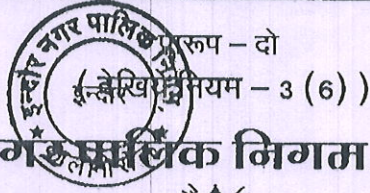 इन्दौर नगर पालिक
प्रारूप – दो
( देखिये नियम – 3 (6) )
इन्दौर
पालिक निगम